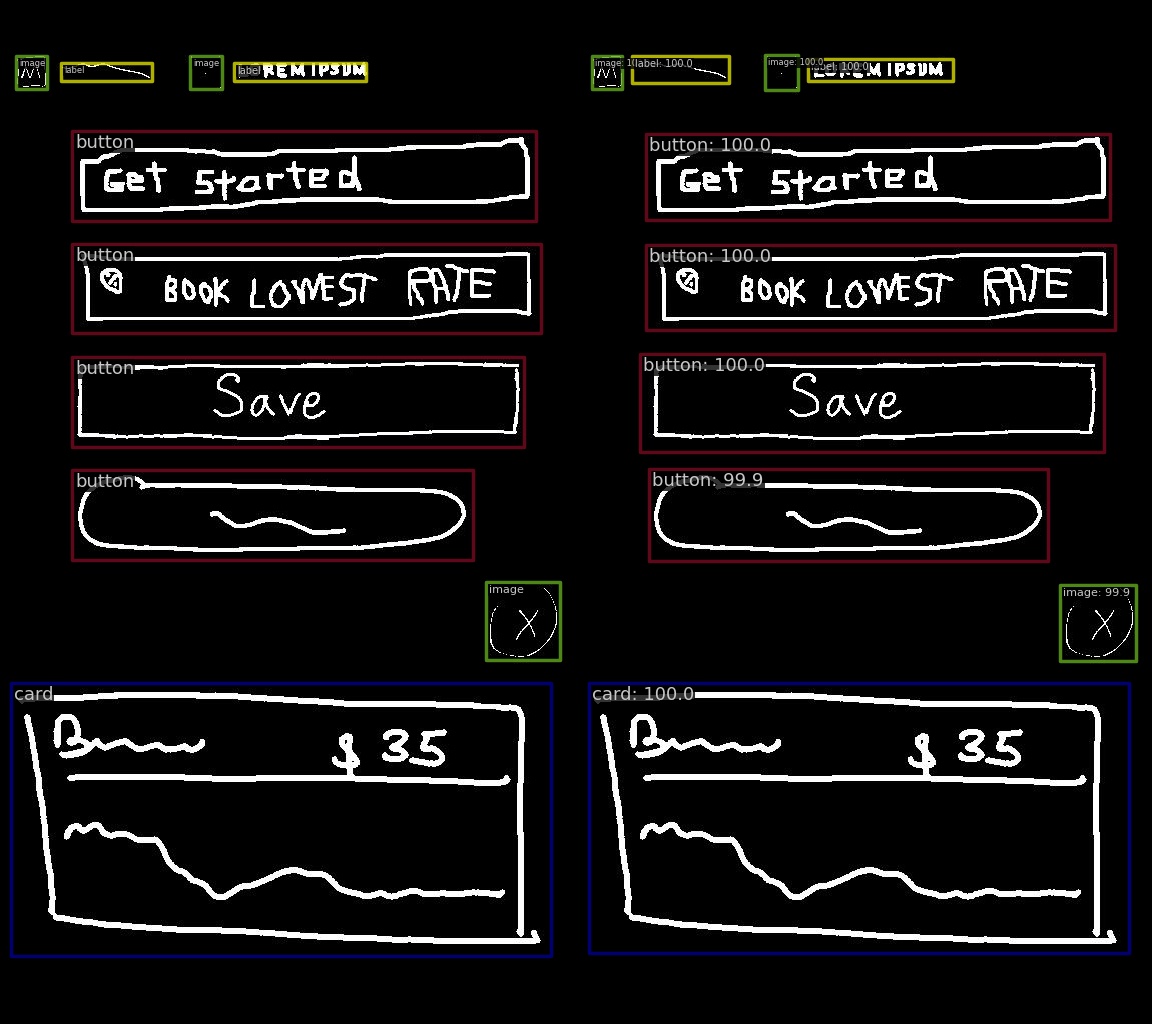 image label image label REM IPSUM
button
Get Started
button
BOOK LOWEST RATE
button
Save
button
image
X
card
$ 35
image: 10 label: 100.0 image: 100.0 label: 100.0 LOREM IPSUM
button: 100.0
Get Started
button: 100.0
BOOK LOWEST RATE
button: 100.0
Save
button: 99.9
image: 99.9
X
card: 100.0
$ 35